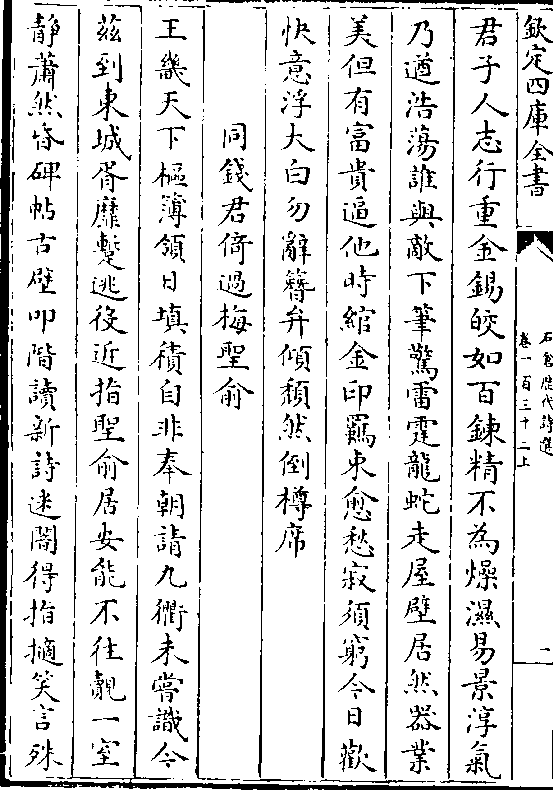 欽定四庫全書
石倉歷代詩選
卷一百三十二上
二
君子人志行重金錫皎如百鍊精不為燥濕易景淳氣
乃遒浩蕩誰與敵下筆驚雷霆龍蛇走屋壁居然器業
美但有富貴逼他時綰金印羈束愈愁寂須窮今日歡
快意浮大白勿辭簪弁傾頹然倒樽席
同錢君倚過梅聖俞
王畿天下樞簿領日填積自非奉朝請九衢未嘗識今
茲到東城胥靡蹔逃役近指聖俞居安能不往覿一室
靜蕭然昏碑帖古壁叩階讀新詩迷闇得指擿笑言殊